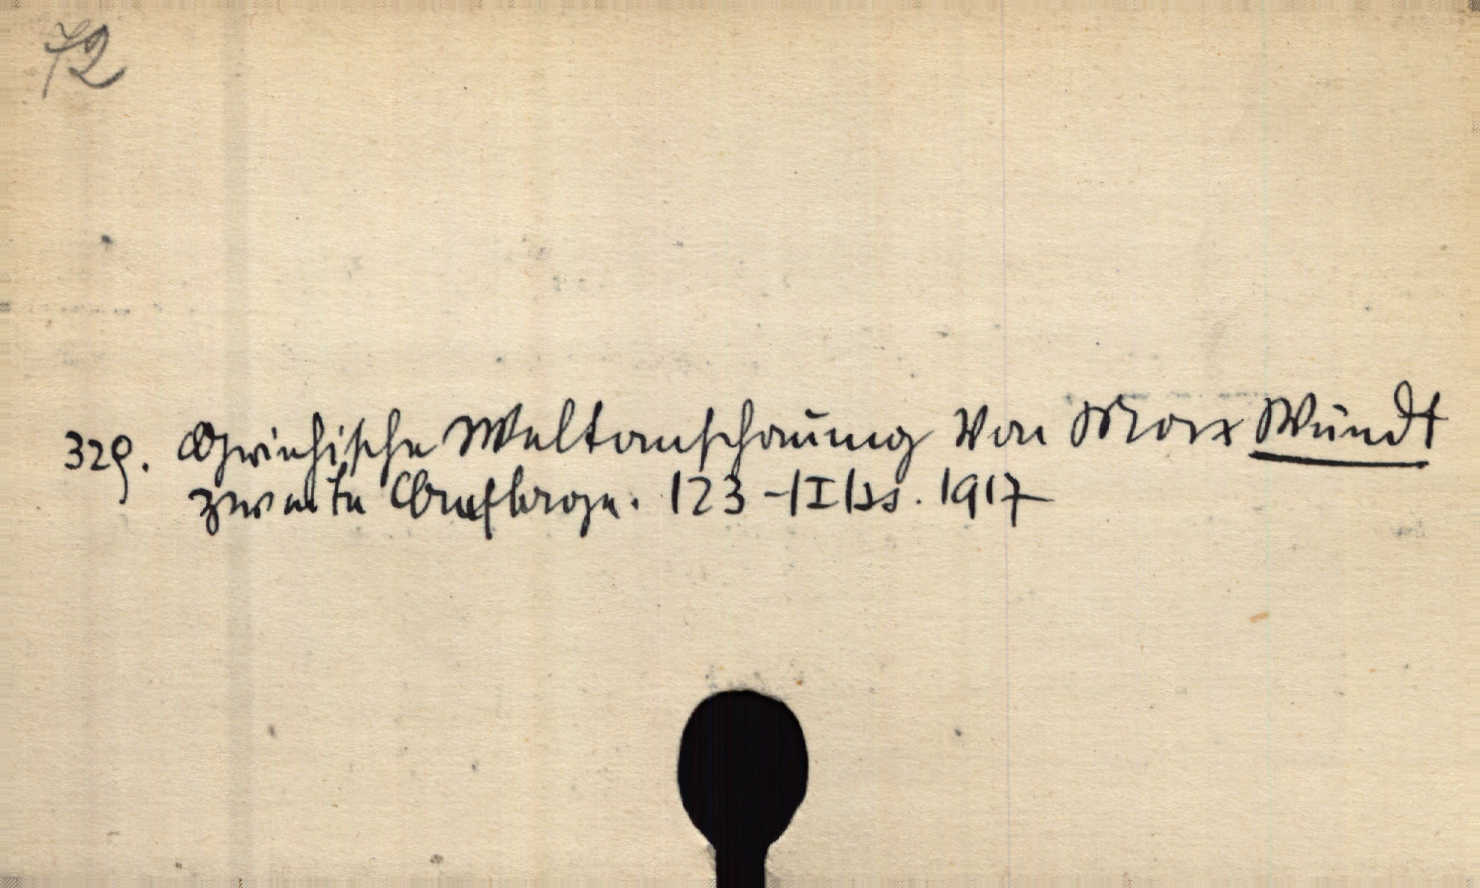 72
329. Griechische Weltanschauung Von Max Wundt
zweite Auflage. 123 - II Ss. 1917